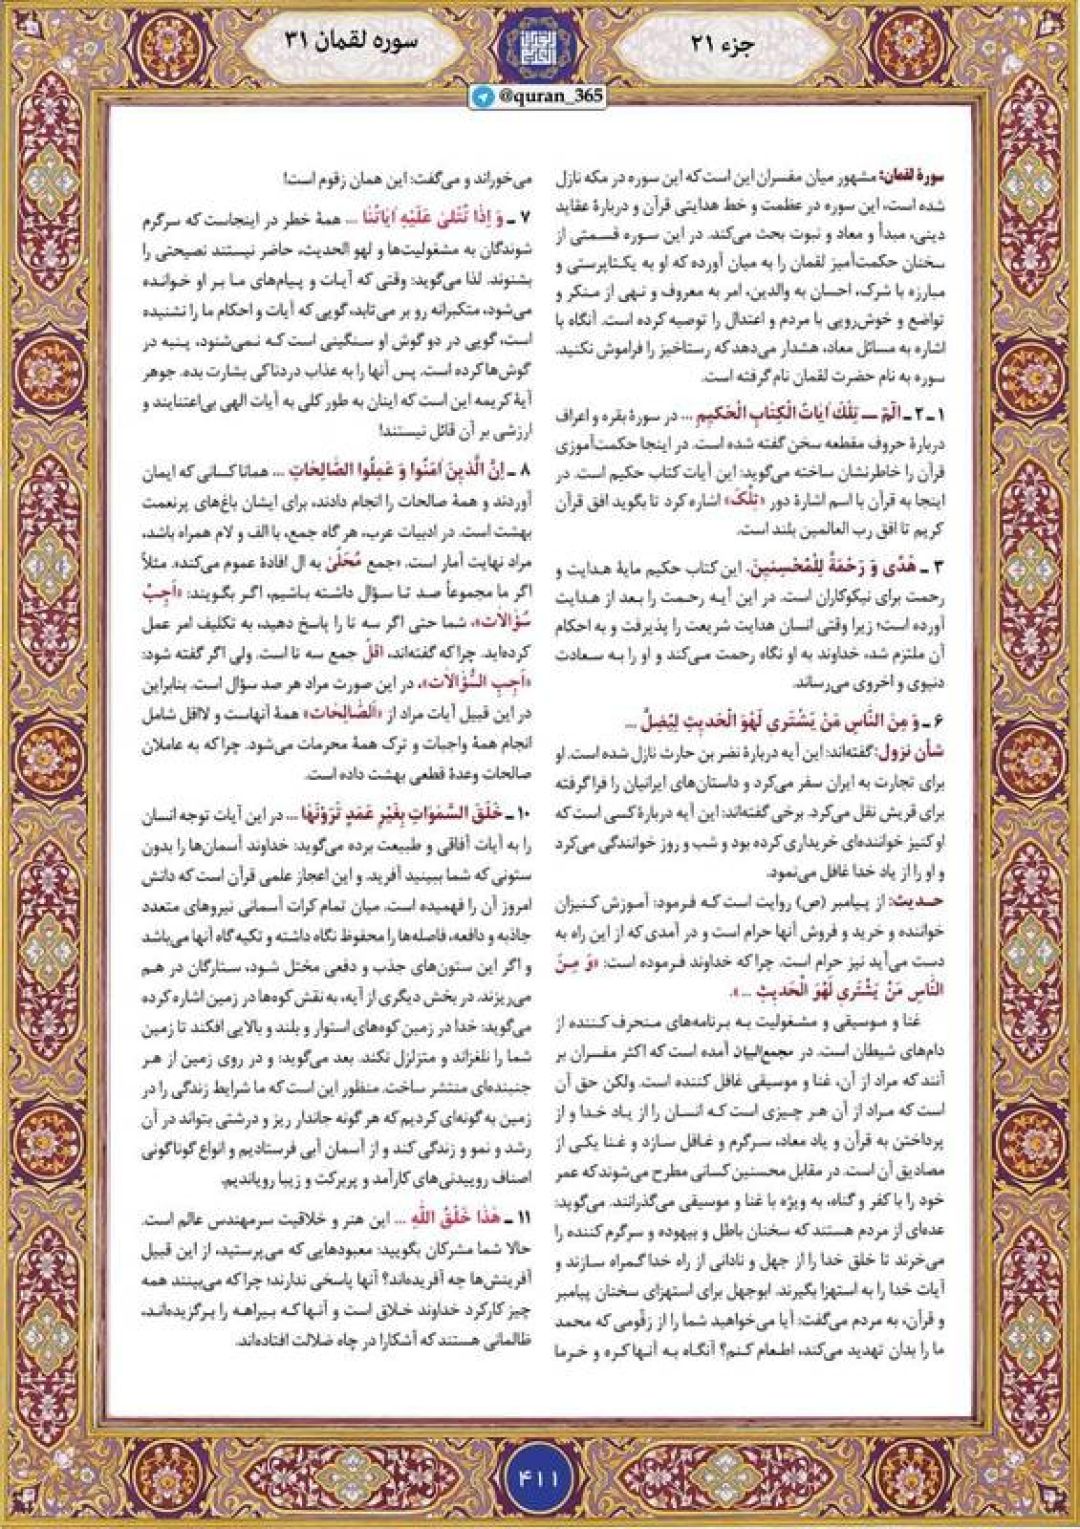 جزء ۲۱
سوره لقمان ۳۱
@quran_365
سورهٔ لقمان: مشهور میان مفسران این است که این سوره در مکه نازل
شده است، این سوره در عظمت و خط هدایتی قرآن و دربارهٔ عقاید
دینی، مبدأ و معاد و نبوت بحث می‌کند. در این سوره قسمتی از
سخنان حکمت‌آمیز لقمان را به میان آورده که او به یکتاپرستی و
مبارزه با شرک، احسان به والدین، امر به معروف و نهی از منکر و
تواضع و خوش‌رویی با مردم و اعتدال را توصیه کرده است. آنگاه با
اشاره به مسائل معاد، هشدار می‌دهد که رستاخیز را فراموش نکنید.
سوره به نام حضرت لقمان نام گرفته است.
۱ـ۲ـ الٓمٓ ــ تِلْكَ اٰیَاتُ الْكِتَابِ الْحَكِیمِ ... در سورهٔ بقره و اعراف
دربارهٔ حروف مقطعه سخن گفته شده است. در اینجا حکمت‌آموزی
قرآن را خاطرنشان ساخته می‌گوید: این آیات کتاب حکیم است. در
اینجا به قرآن با اسم اشارهٔ دور «تِلْكَ» اشاره کرد تا بگوید افق قرآن
کریم تا افق رب العالمین بلند است.
۳ ـ هُدًی وَ رَحْمَةً لِلْمُحْسِنِینَ. این کتاب حکیم مایهٔ هدایت و
رحمت برای نیکوکاران است. در این آیه رحمت را بعد از هدایت
آورده است؛ زیرا وقتی انسان هدایت شریعت را پذیرفت و به احکام
آن ملتزم شد، خداوند به او نگاه رحمت می‌کند و او را به سعادت
دنیوی و اخروی می‌رساند.
۶ ـ وَ مِنَ النَّاسِ مَنْ یَشْتَرِی لَهْوَ الْحَدِیثِ لِیُضِلَّ ...
شأن نزول: گفته‌اند: این آیه دربارهٔ نضر بن حارث نازل شده است. او
برای تجارت به ایران سفر می‌کرد و داستان‌های ایرانیان را فرا گرفته
برای قریش نقل می‌کرد. برخی گفته‌اند: این آیه دربارهٔ کسی است که
او کنیز خواننده‌ای خریداری کرده بود و شب و روز خوانندگی می‌کرد
و او را از یاد خدا غافل می‌نمود.
حدیث: از پیامبر (ص) روایت است که فرمود: آموزش کنیزان
خواننده و خرید و فروش آنها حرام است و در آمدی که از این راه به
دست می‌آید نیز حرام است. چرا که خداوند فرموده است: «وَ مِنَ
النَّاسِ مَنْ یَشْتَرِی لَهْوَ الْحَدِیثِ ...».
غنا و موسیقی و مشغولیت به برنامه‌های منحرف کننده از
دام‌های شیطان است. در مجمع‌البیان آمده است که اکثر مفسران بر
آنند که مراد از آن، غنا و موسیقی غافل کننده است. ولکن حق آن
است که مراد از آن هر چیزی است که انسان را از یاد خدا و از
پرداختن به قرآن و یاد معاد، سرگرم و غافل سازد و غنا یکی از
مصادیق آن است. در مقابل محسنین کسانی مطرح می‌شوند که عمر
خود را با کفر و گناه، به ویژه با غنا و موسیقی می‌گذرانند. می‌گوید:
عده‌ای از مردم هستند که سخنان باطل و بیهوده و سرگرم کننده را
می‌خرند تا خلق خدا را از جهل و نادانی از راه خدا گمراه سازند و
آیات خدا را به استهزا بگیرند. ابوجهل برای استهزای سخنان پیامبر
و قرآن، به مردم می‌گفت: آیا می‌خواهید شما را از زقّومی که محمد
ما را بدان تهدید می‌کند، اطعام کنم؟ آنگاه به آنها کره و خرما
می‌خوراند و می‌گفت: این همان زقوم است!
۷ ـ وَ اِذَا تُتْلیٰ عَلَیْهِ اٰیَاتُنَا ... همهٔ خطر در اینجاست که سرگرم
شوندگان به مشغولیت‌ها و لهو الحدیث، حاضر نیستند نصیحتی را
بشنوند. لذا می‌گوید: وقتی که آیات و پیام‌های ما بر او خوانده
می‌شود، متکبرانه رو بر می‌تابد، گویی که آیات و احکام ما را نشنیده
است، گویی در دو گوش او سنگینی است که نمی‌شنود، پنبه در
گوش‌ها کرده است. پس آنها را به عذاب دردناکی بشارت بده. جوهر
آیهٔ کریمه این است که اینان به طور کلی به آیات الهی بی‌اعتنایند و
ارزشی بر آن قائل نیستند!
۸ ـ اِنَّ الَّذِینَ اٰمَنُوا وَ عَمِلُوا الصَّالِحَاتِ ... همانا کسانی که ایمان
آوردند و همهٔ صالحات را انجام دادند، برای ایشان باغ‌های پرنعمت
بهشت است. در ادبیات عرب، هر گاه جمع، با الف و لام همراه باشد،
مراد نهایت آمار است. «جمع مُحَلّیٰ به ال افادهٔ عموم می‌کند». مثلاً
اگر ما مجموعاً صد تا سؤال داشته باشیم، اگر بگویند: «اَجِبْ
سُؤَالَات»، شما حتی اگر سه تا را پاسخ دهید، به تکلیف امر عمل
کرده‌اید. چرا که گفته‌اند، اقلّ جمع سه تا است. ولی اگر گفته شود:
«اَجِبِ السُّؤَالَات»، در این صورت مراد هر صد سؤال است. بنابراین
در این قبیل آیات مراد از «اَلصَّالِحَات» همهٔ آنهاست و لااقل شامل
انجام همهٔ واجبات و ترک همهٔ محرمات می‌شود. چرا که به عاملان
صالحات وعدهٔ قطعی بهشت داده است.
۱۰ ـ خَلَقَ السَّمٰوَاتِ بِغَیْرِ عَمَدٍ تَرَوْنَهَا ... در این آیات توجه انسان
را به آیات آفاقی و طبیعت برده می‌گوید: خداوند آسمان‌ها را بدون
ستونی که شما ببینید آفرید. و این اعجاز علمی قرآن است که دانش
امروز آن را فهمیده است. میان تمام کرات آسمانی نیروهای متعدد
جاذبه و دافعه، فاصله‌ها را محفوظ نگاه داشته و تکیه گاه آنها می‌باشد
و اگر این ستون‌های جذب و دفعی مختل شود، ستارگان در هم
می‌ریزند. در بخش دیگری از آیه، به نقش کوه‌ها در زمین اشاره کرده
می‌گوید: خدا در زمین کوه‌های استوار و بلند و بالایی افکند تا زمین
شما را نلغزاند و متزلزل نکند. بعد می‌گوید: و در روی زمین از هر
جنبنده‌ای منتشر ساخت. منظور این است که ما شرایط زندگی را در
زمین به گونه‌ای کردیم که هر گونه جاندار ریز و درشتی بتواند در آن
رشد و نمو و زندگی کند و از آسمان آبی فرستادیم و انواع گوناگونی
اصناف روییدنی‌های کارآمد و پربرکت و زیبا رویاندیم.
۱۱ ـ هٰذَا خَلْقُ اللّٰهِ ... این هنر و خلاقیت سرمهندس عالم است.
حالا شما مشرکان بگویید: معبودهایی که می‌پرستید، از این قبیل
آفرینش‌ها چه آفریده‌اند؟ آنها پاسخی ندارند؛ چرا که می‌بینند همه
چیز کارکرد خداوند خلاق است و آنها که بیراهه را برگزیده‌اند،
ظالمانی هستند که آشکارا در چاه ضلالت افتاده‌اند.
۴۱۱